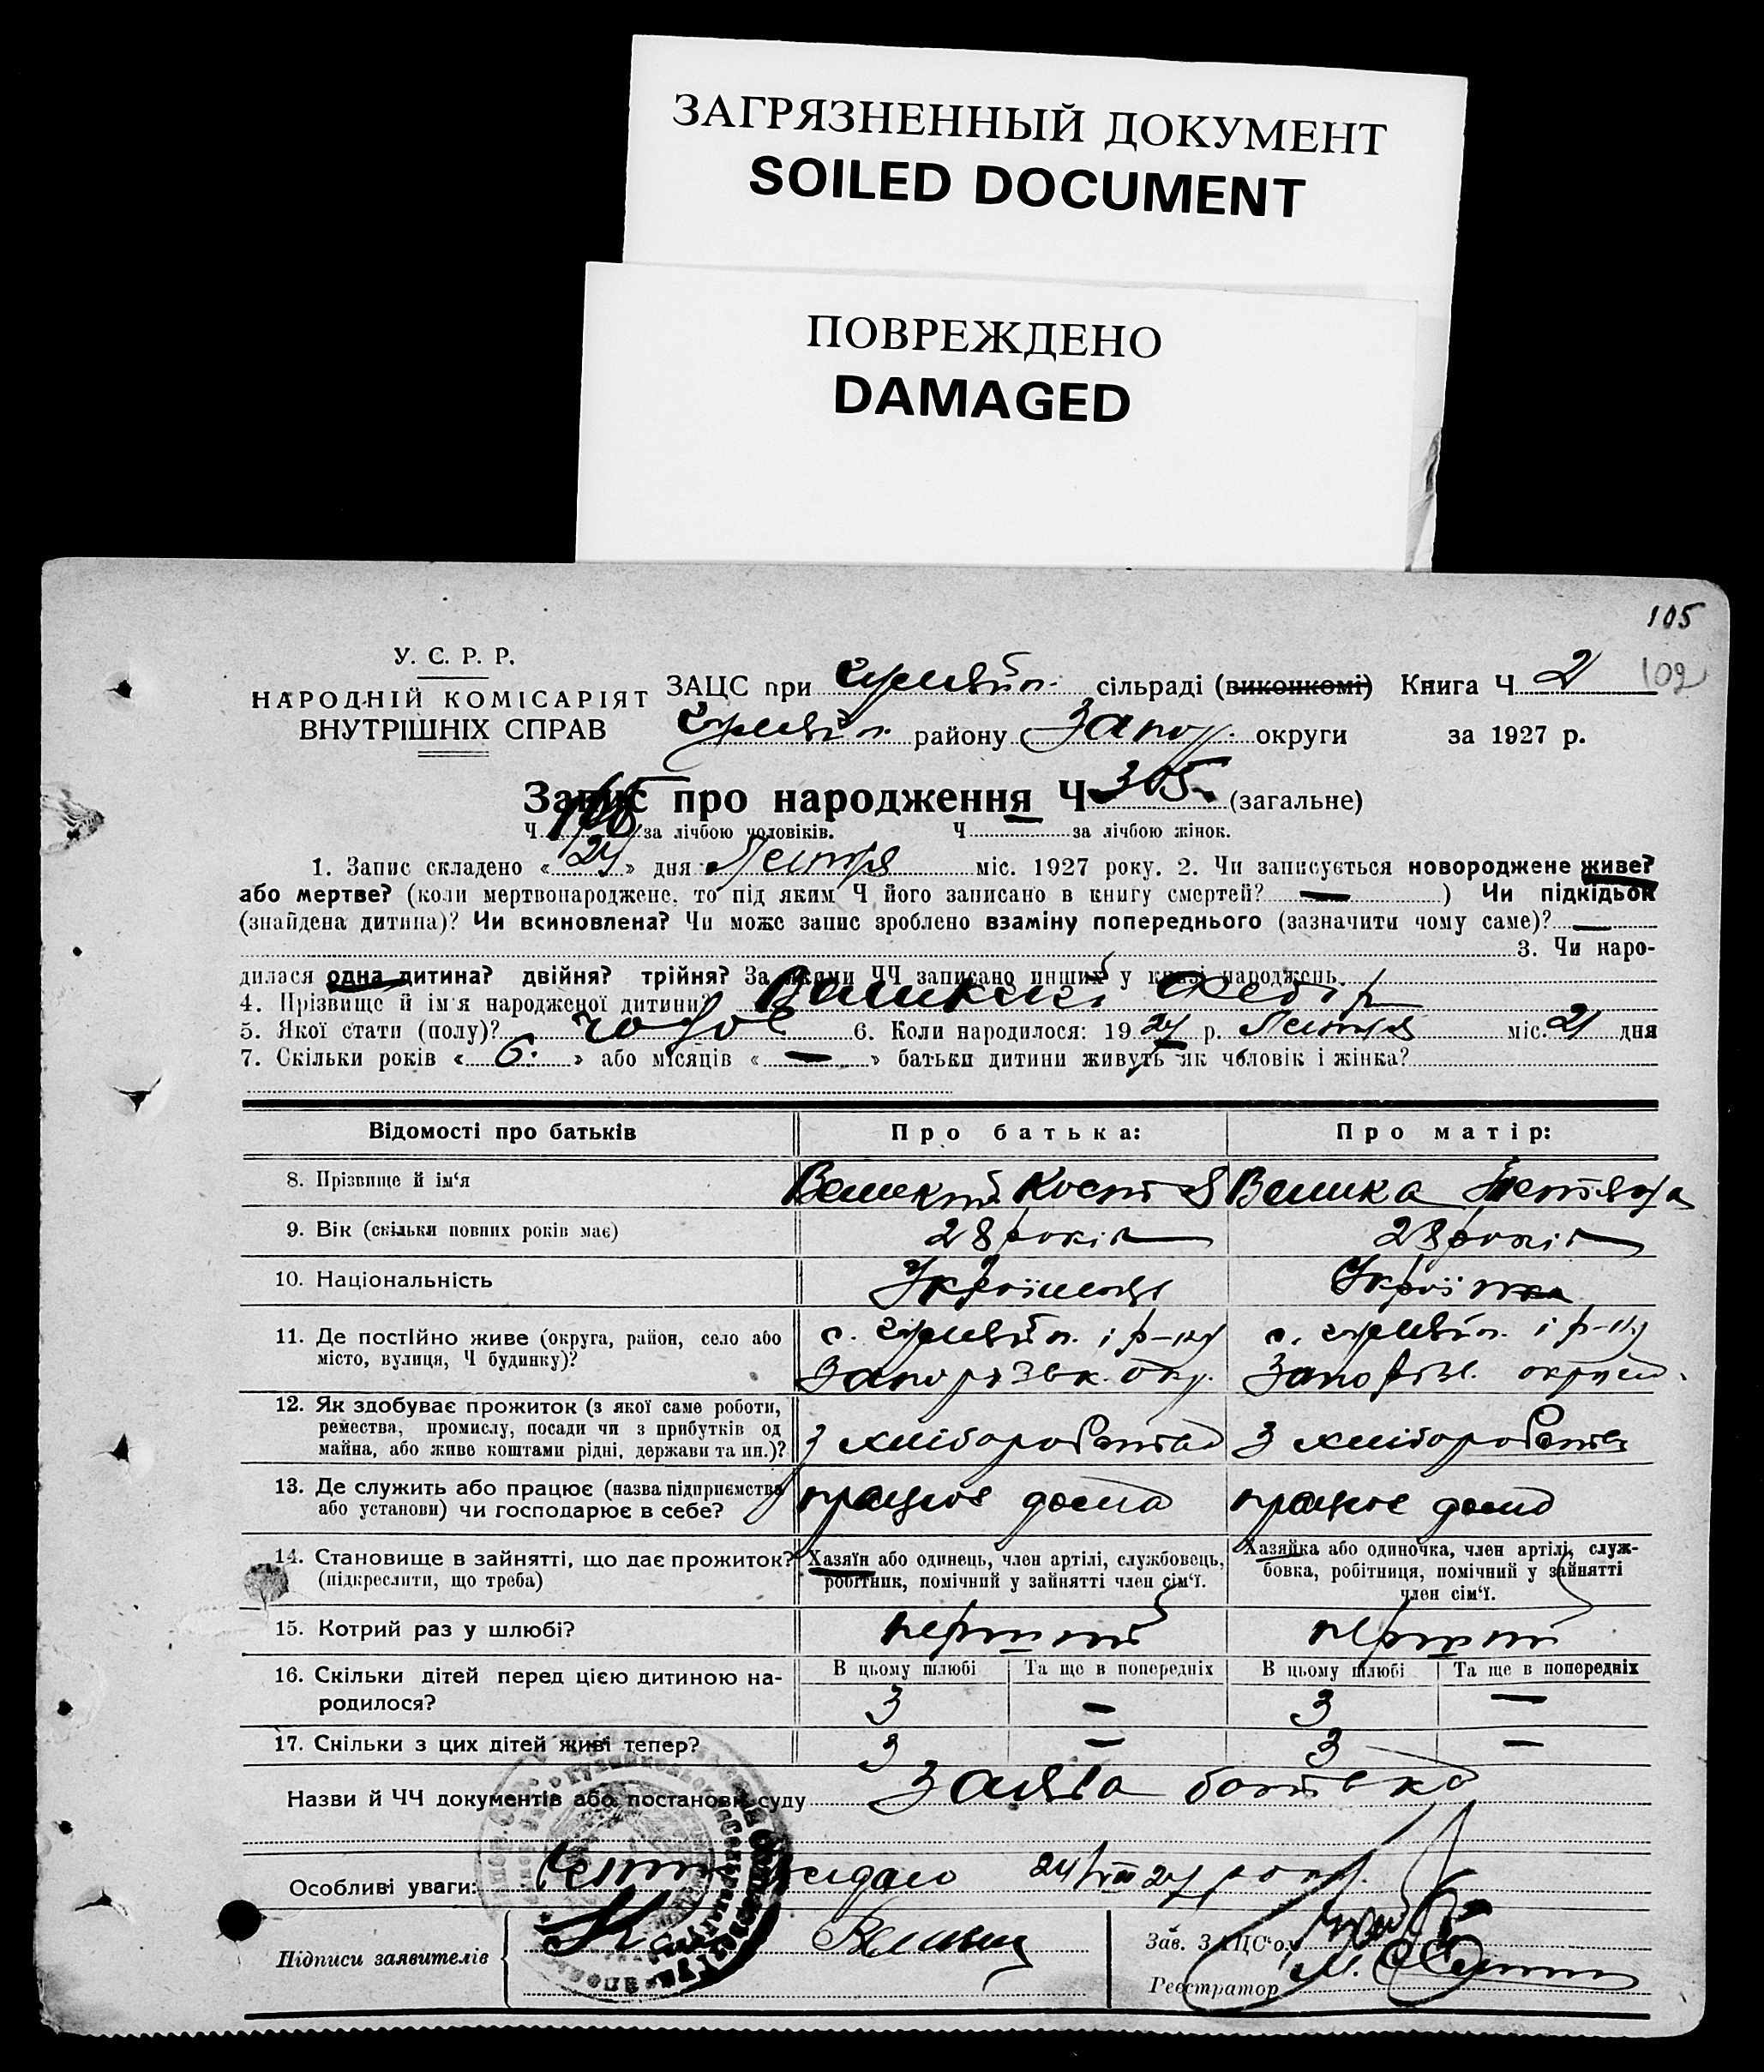 ЗАГРЯЗНЕННЫЙ ДОКУМЕНТ
SOILED DOCUMENT
ПОВРЕЖДЕНО
DAMAGED
105
102
У. С. Р. Р.
НАРОДНІЙ КОМІСАРІЯТ
ВНУТРІШНІХ СПРАВ
ЗАЦС при сільраді (виконкомі) Книга Ч 2
району Запор. округи за 1927 р.
Запис про народження Ч 305 (загальне)
Ч за лічбою чоловіків. Ч за лічбою жінок.
1. Запис складено « 24 » дня міс. 1927 року. 2. Чи записується новороджене живе?
або мертве? (коли мертвонароджене, то під яким Ч його записано в книгу смертей? — ) Чи підкідьок
(знайдена дитина)? Чи всиновлена? Чи може запис зроблено взаміну попереднього (зазначити чому саме)? —
3. Чи наро-
дилася одна дитина? двійня? трійня? За якими ЧЧ записано инших у книзі народжень.
4. Прізвище й ім'я народженої дитини? Великий Федір
5. Якої стати (полу)? чолов 6. Коли народилося: 19 27 р. міс. 21 дня
7. Скільки років « 6 » або місяців « — » батьки дитини живуть як чоловік і жінка?
Відомості про батьків Про батька: Про матір:
8. Прізвище й ім'я Великий Кост Велика Тетяна
9. Вік (скільки повних років має) 28 років 28 років
10. Національність Українець Українка
11. Де постійно живе (округа, район, село або
місто, вулиця, Ч будинку)?
с. і р-ну с. і р-ну
Запорізьк. окр. Запоріз. округи
12. Як здобуває прожиток (з якої саме роботи,
ремества, промислу, посади чи з прибутків од
майна, або живе коштами рідні, держави та ин.)?
З хліборобства З хліборобства
13. Де служить або працює (назва підприємства
або установи) чи господарює в себе?
працює дома працює дома
14. Становище в зайнятті, що дає прожиток?
(підкреслити, що треба)
Хазяїн або одинець, член артілі, службовець,
робітник, помічний у зайнятті член сім'ї.
Хазяйка або одиночка, член артілі, служ-
бовка, робітниця, помічний у зайнятті
член сім'ї.
15. Котрий раз у шлюбі? перший перший
16. Скільки дітей перед цією дитиною на-
родилося?
В цьому шлюбі Та ще в попередніх В цьому шлюбі Та ще в попередніх
3 — 3 —
17. Скільки з цих дітей живі тепер? 3 — 3 —
Назви й ЧЧ документів або постанови суду Заява батька
Особливі уваги: видано 24/VIII 27 року
Підписи заявителів
Зав. ЗАЦС'ом
Реєстратор